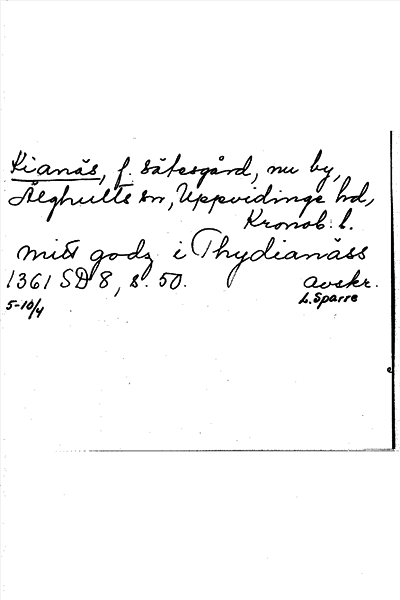 Kianäs, f. sätesgård, nu by,
Älghults sn, Uppvidinge hd,
Kronob. l.
mitt godz i Thydianäss
1361 SD 8, s. 50. avskr.
5-10/4 L. Sparre